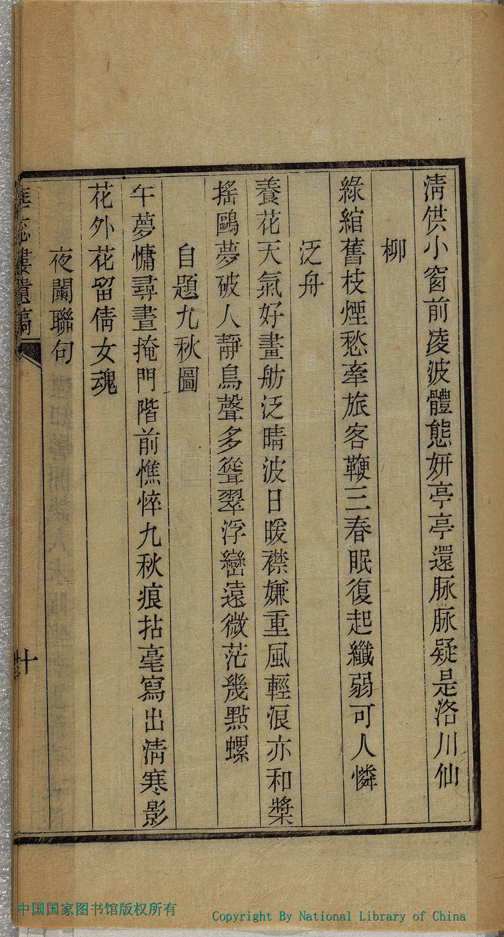 清供小窗前凌波體態妍亭亭還脉脉疑是洛川仙
柳
綠綰舊枝煙愁牽旅客鞭三春眠復起纖弱可人憐
泛舟
養花天氣好畫舫泛晴波日暖襟嫌重風輕浪亦和槳
搖鷗夢破人靜鳥聲多聳翠浮巒遠微茫幾點螺
自題九秋圖
午夢慵尋晝掩門階前憔悴九秋痕拈毫寫出清寒影
花外花留倩女魂
夜闌聯句
樓遺稿
十
中国国家图书馆版权所有
Copyright By National Library of China